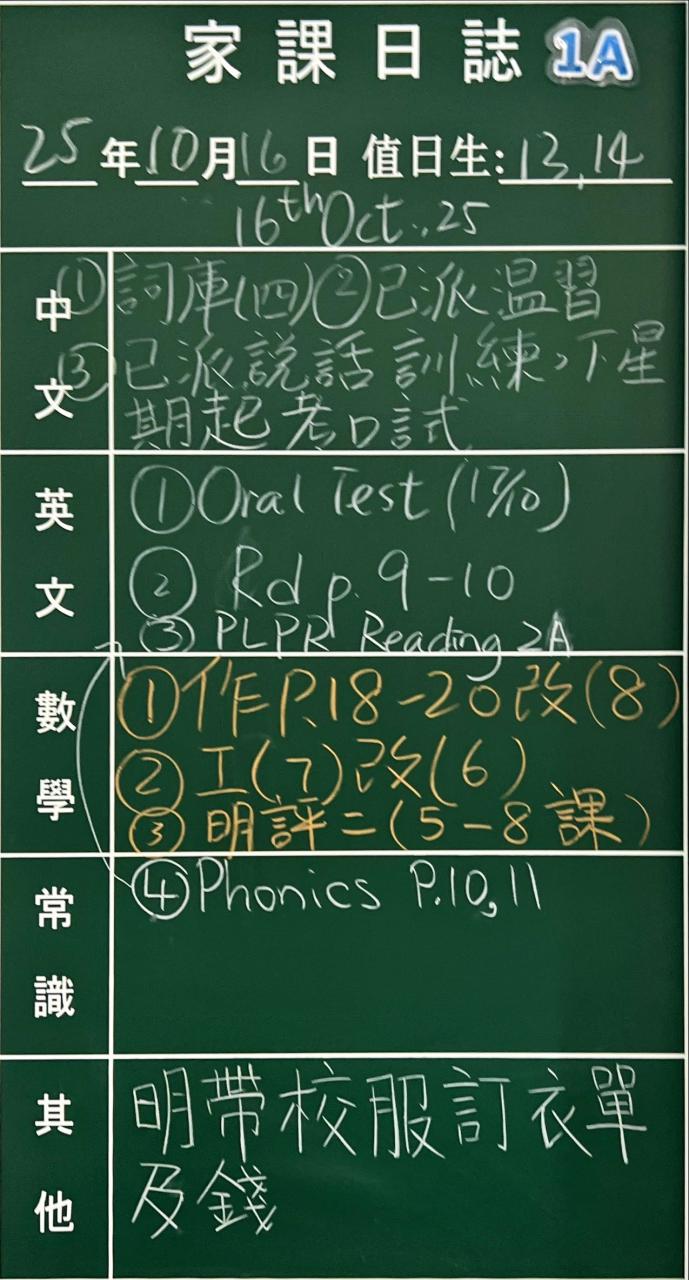 家課日誌 1A
25年10月16日 值日生:13,14
16th Oct.,25
中文
①詞庫(四)②已派温習
③已派說話訓練，下星
期起考口試
英文
①Oral Test (17/10)
② Rd p. 9-10
③ PLPR Reading 2A
數學
①作P.18-20改(8)
②工(7)改(6)
③ 明評二(5-8課)
常識
④Phonics P.10,11
其他
明帶校服訂衣單
及錢